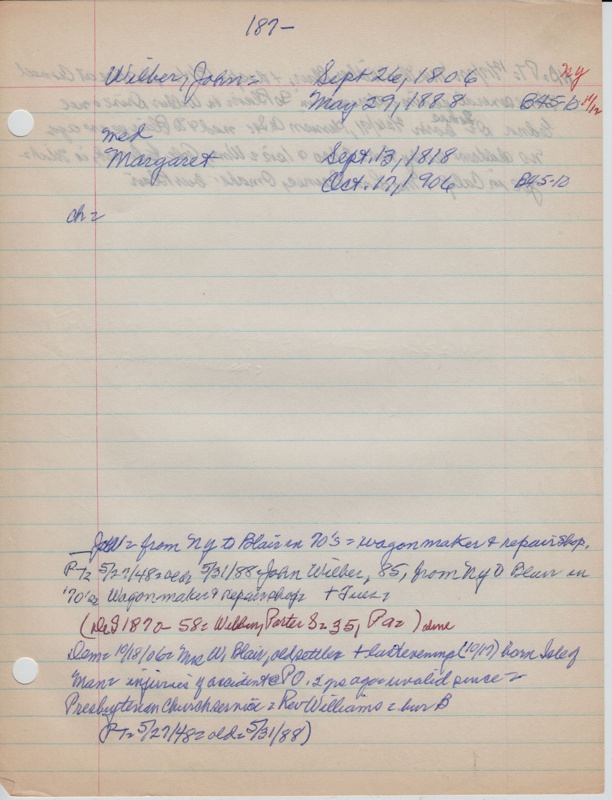 187-
Wilber, John = Sept 26, 1806 Ny
May 29, 1888 B45-D-
med
Margaret Sept. 13, 1818
Oct. 17, 1906 B45-10
ch =
John = from Ny to Blair in 70's = wagonmaker & repair shop.
P-T= 5/27/48 = 5/31/88 John Wilber, 85, from Ny to Blair in
'70's Wagonmaker & repair shop = + Tues =
(DeS 1870 - 58 = Wilber, Porter S = 35, Pa = ) alone
Dem = 10/18/06 = Mrs W, Blair, old settler + last evening (10/17) born Isle of
Man = injuries of accident @ PO. 2 yrs ago = invalid since =
Presbyterian Church service = Rev Williams = bur B
P-T= 5/27/48 = old = 5/31/88)